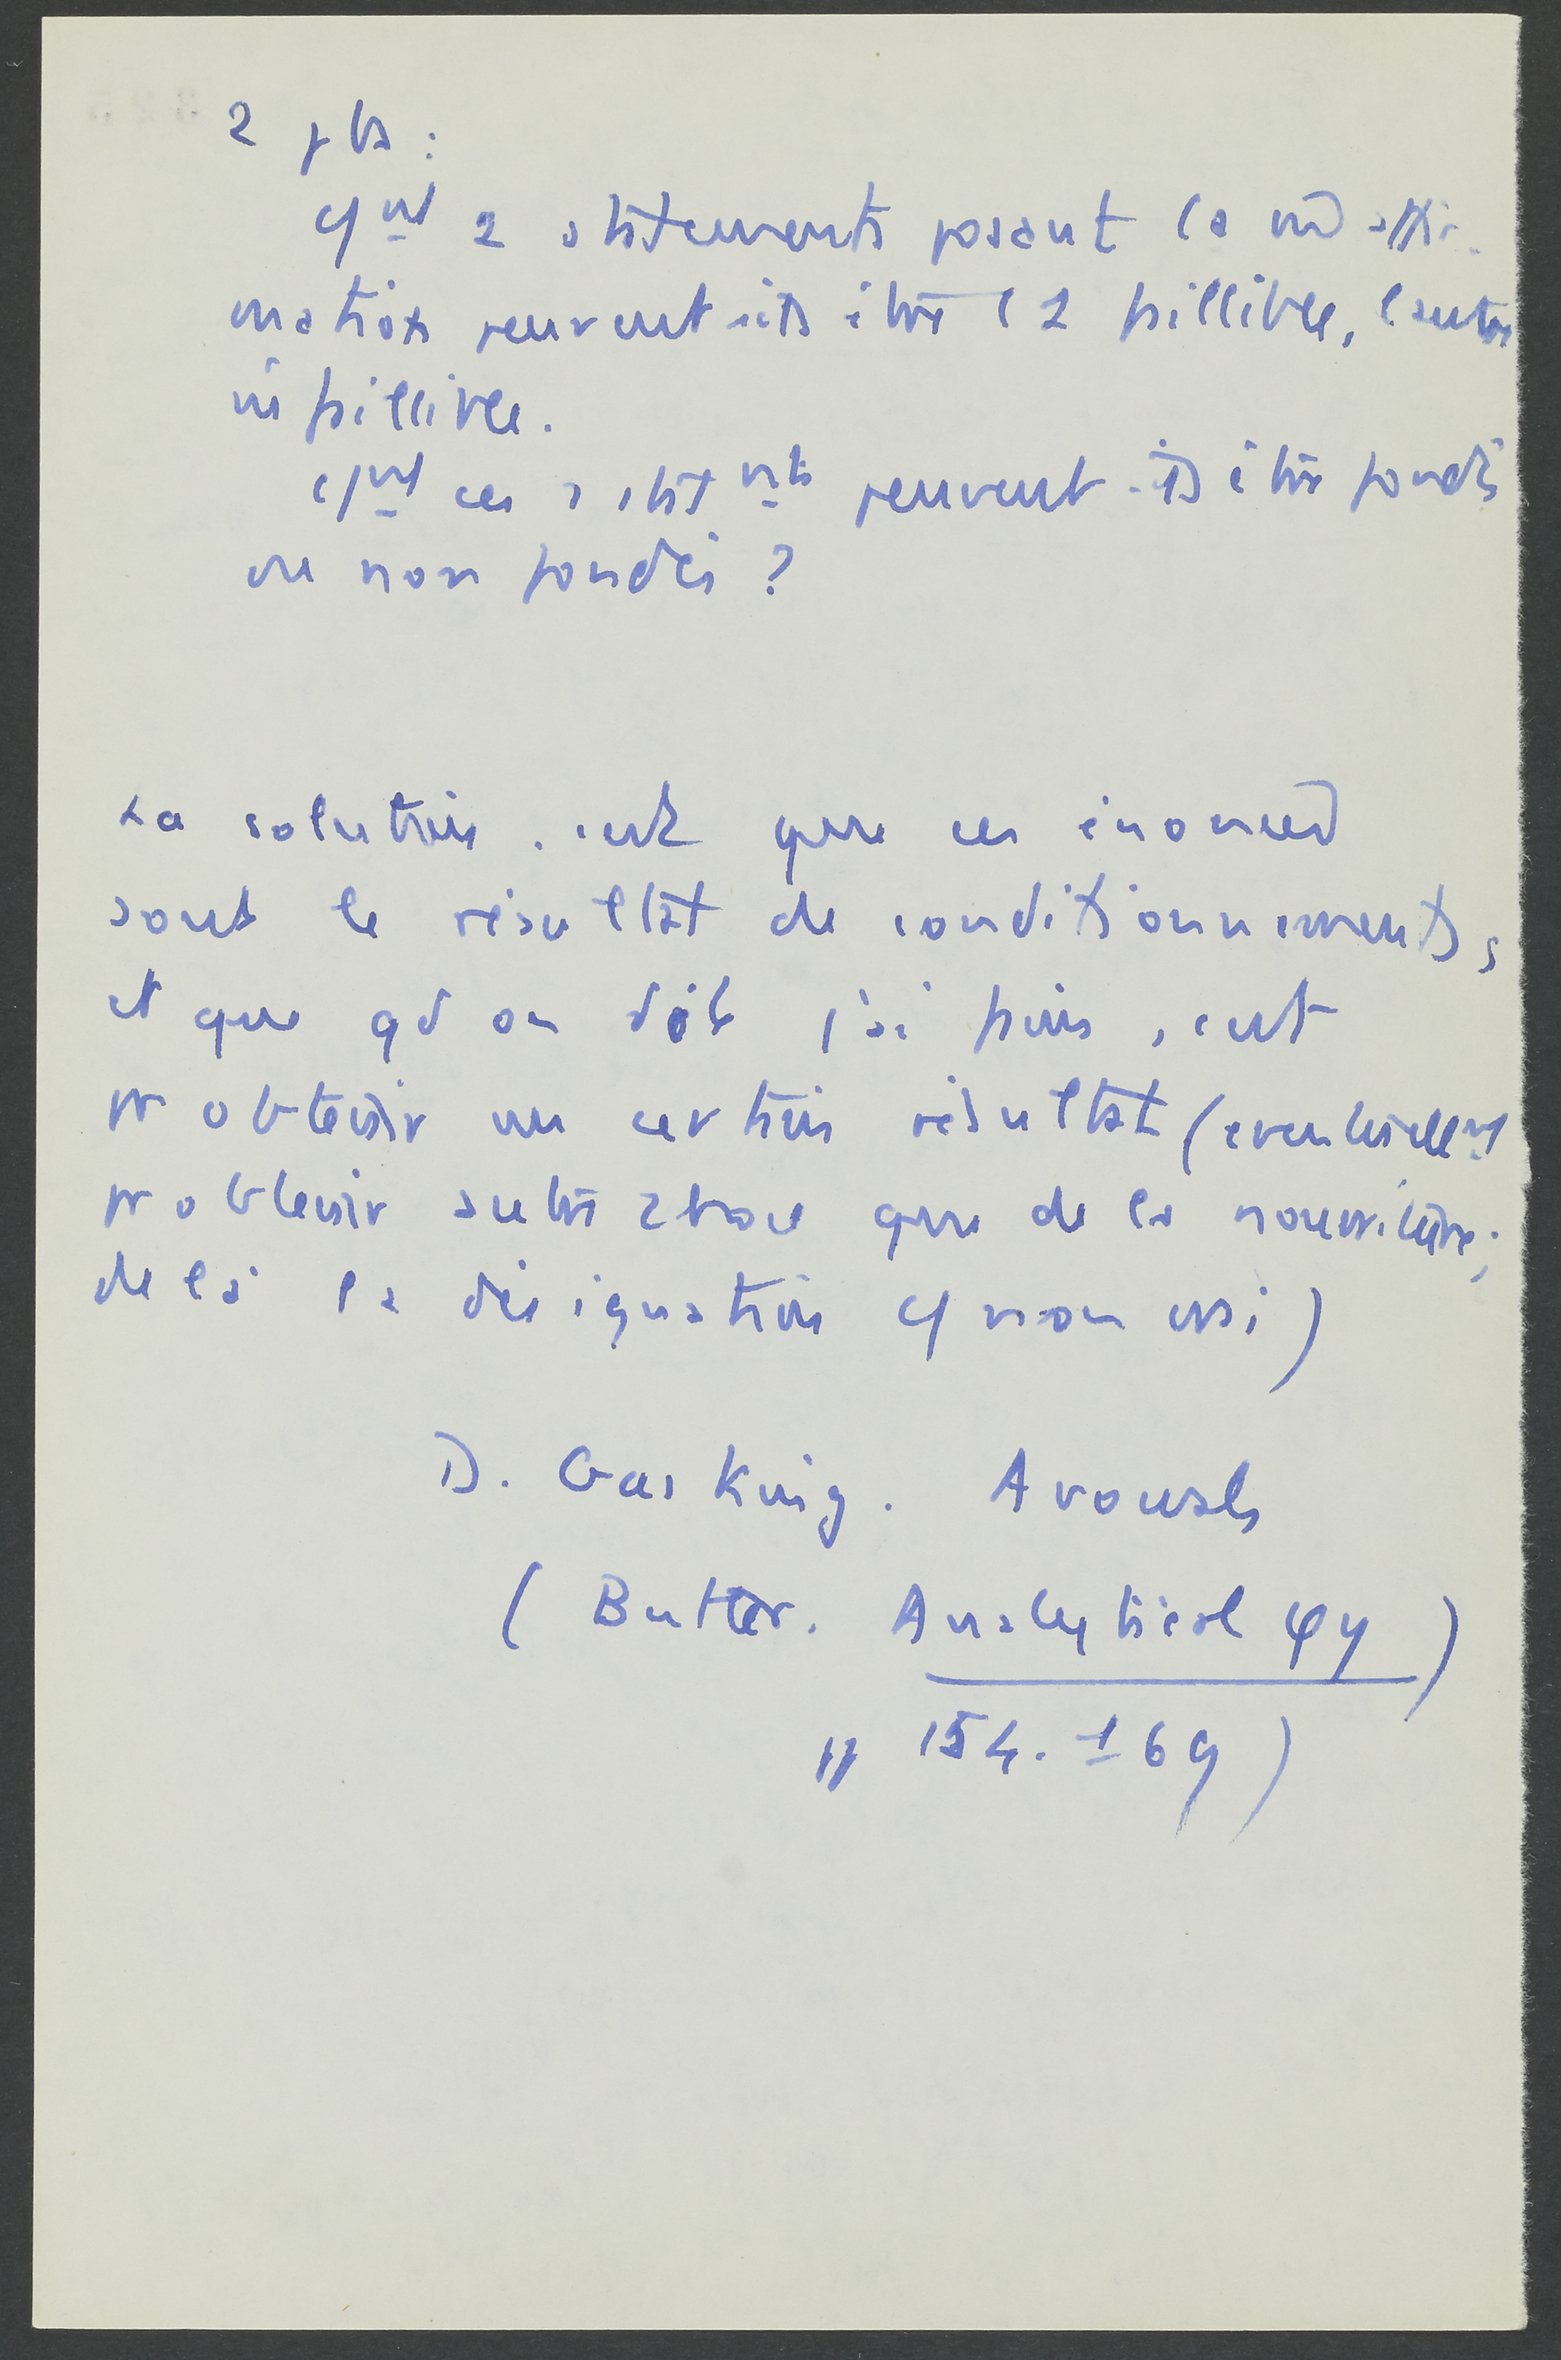 2 pbs :
Cmt 2 statements posant la m̂ affir-
mation peuvent-ils être l'1 faillible, l'autre
infaillible.
Cmt ces 2 statmts peuvent-ils être fondés
ou non fondés ?
La solution, c'est que ces énoncés
sont le résultat de conditionnements,
et que qd on dit j'ai faim, c'est
pr obtenir un certain résultat (éventuellmt
pr obtenir autre chose que de la nourriture ;
de là la désignation
D. Gasking. Avowals
( Butler. Analytical φy )
pp 154. 169 )